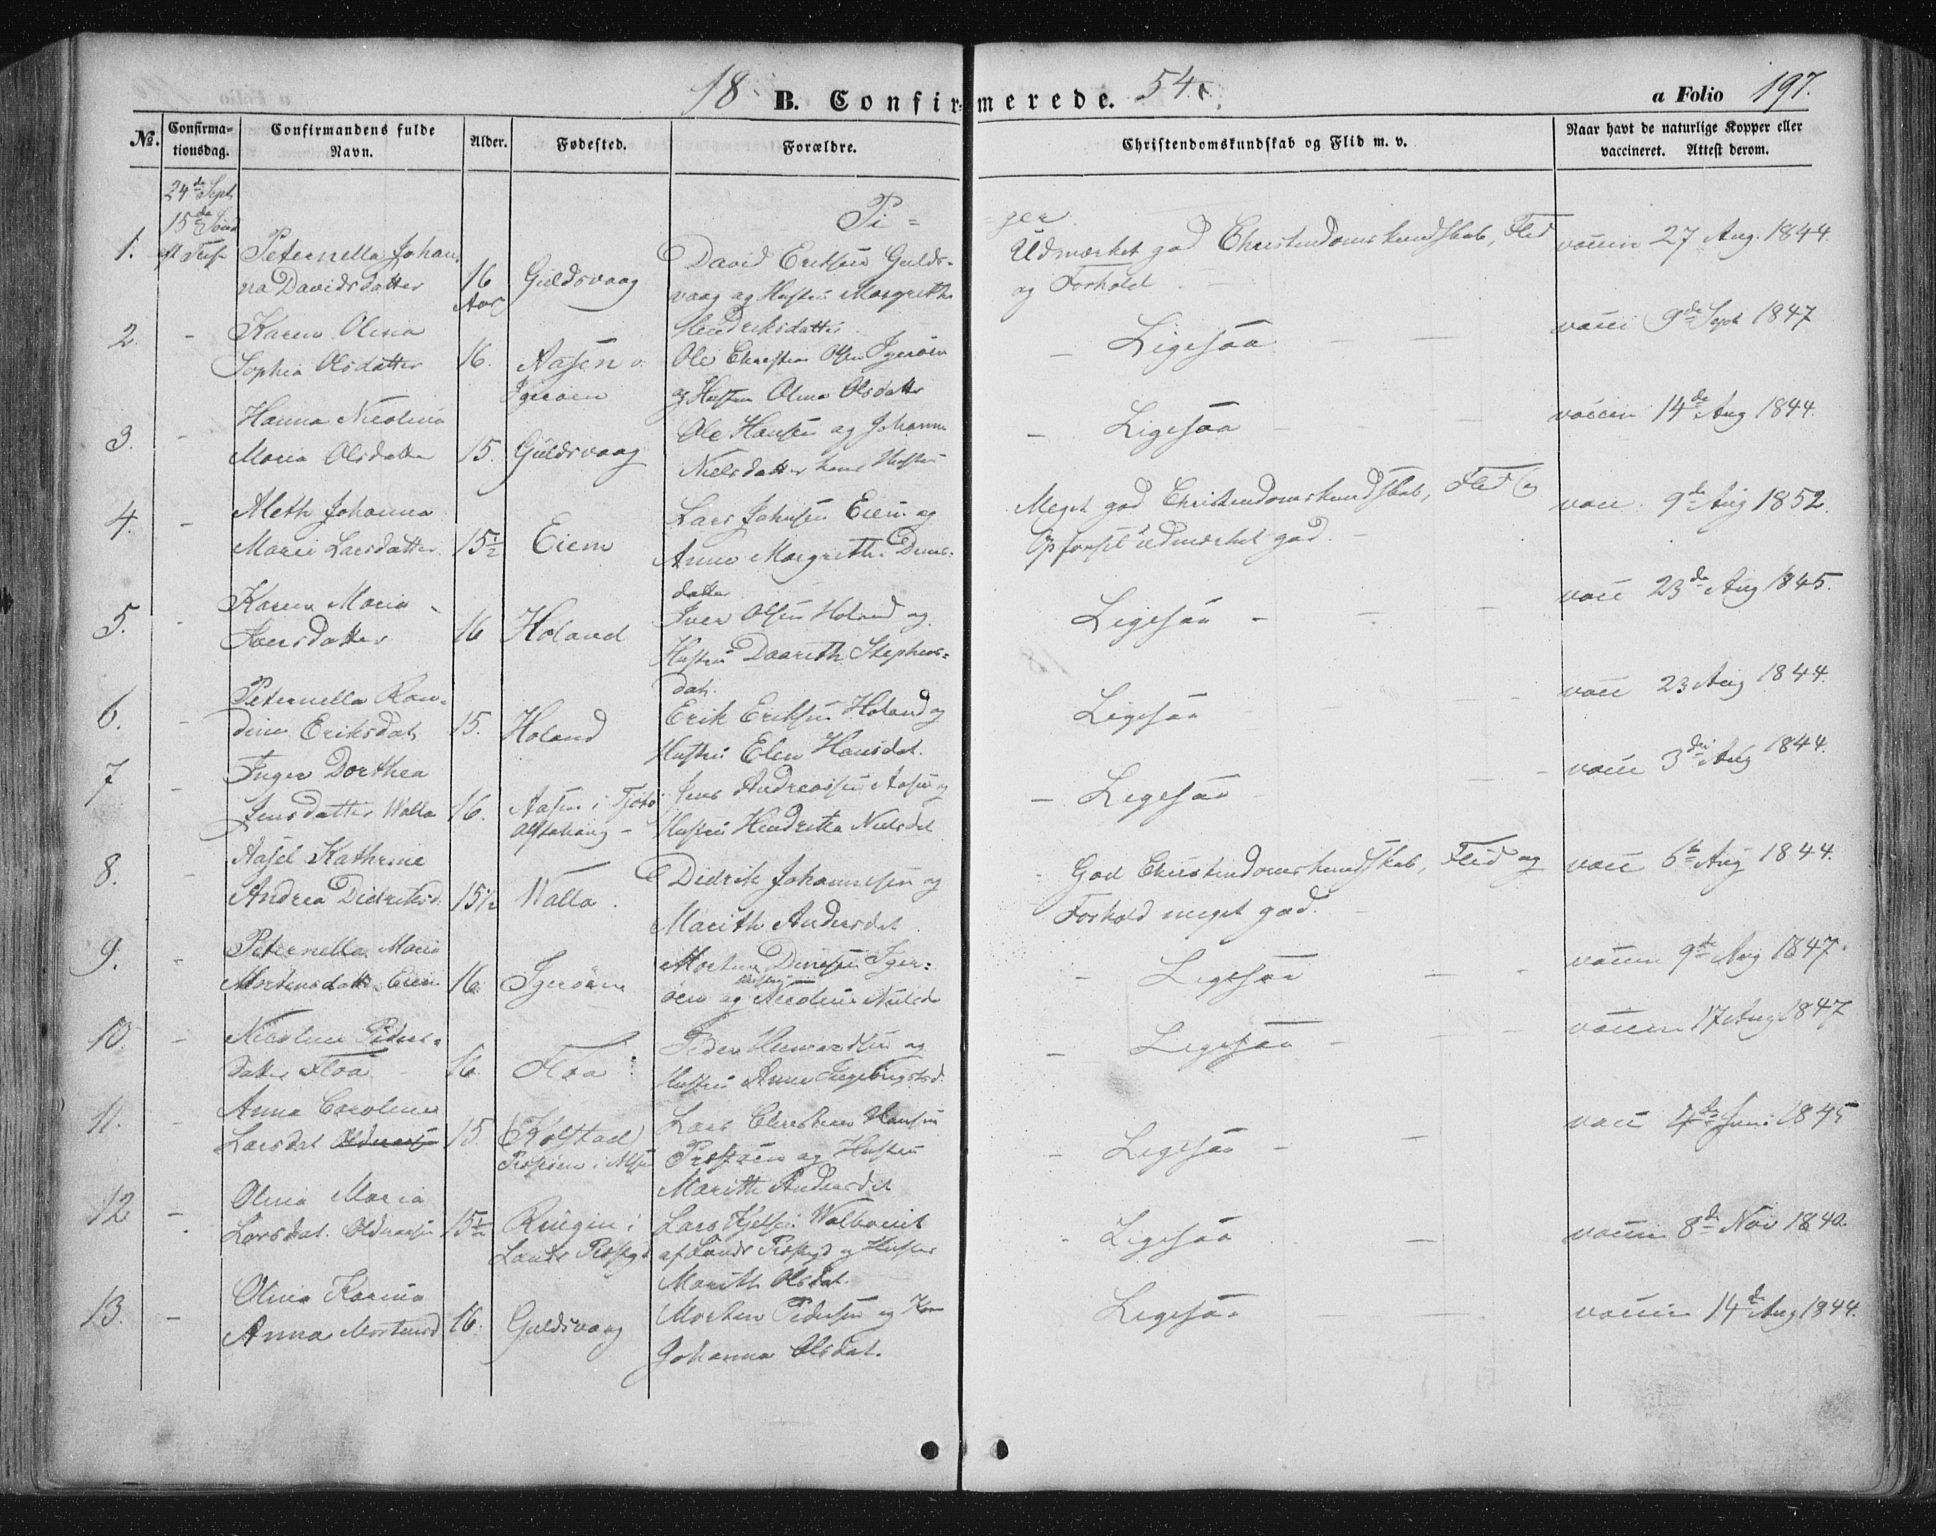 18 B. Confirmerede. 54. a Folio 197.
No. Confirmationsdag. Confirmandens fulde Navn. Alder. Fødested. Forældre. Christendomskundskab og Flid m. v. Naar havt de naturlige Kopper eller vaccineret. Attest derom.
24de Sept
15de Sønd
Pi = ger
1. Peternella Johan- Guldsvaag David Eriksen Gulds- Udmærket god Christendomskundskab, Flid vaccin 27 Aug. 1844.
na Davidsdatter 16 Aar vaag og Hustru Margrethe og Forhold
Hendriksdatter
2. - Karen Olina Ligesaa vacci 9de Sept 1847
Sophia Olsdatter 16. Aasen Ole Christian Olsen Igerøen
Igerøen og Hustru Olina Olsdatter
3. - Hanna Nicolina Ole Hansen og Johanna Ligesaa vaccin 14de Aug 1844.
Maria Olsdatter 15. Guldsvaag Nielsdatter hans Hustru
4. - Aleth Johanna Lars Johnsen Eiem og Meget god Christendomskundskab, Flid og vacc. 9de Aug 1852.
Marie Larsdatter. 15½ Eiem Anne Margrethe Dines- Opførsel udmærket god.
datter
5. - Karen Maria Iver Olsen Holand og Ligesaa vacc 23de Aug 1845.
Iversdatter 16 Holand Hustru Daareth Stephens-
dat.
6. - Peternella Ran- Ligesaa vacc 23 Aug 1844.
dine Eriksdat. 15. Holand Erik Eriksen Holand og
Hustru Elen Hansdat.
7 - Inger Dorthea Jens Andreassen Aasen og Ligesaa vacc 3die Aug 1844.
Jensdatter Walla 16. Aasen i Tjøtø Hustru Hendrikka Nielsdat
Alstahaug -
8. Aasel Kathrine Didrik Johannesen og God Christendomskundskab, Flid og vacc 6te Aug 1844.
Andrea Didriksd. 15½ Walla. Marith Andersdat. Forhold meget god.
9. - Peternella Maria Morten Dinesen Iger- Ligesaa vaccin 9de Aug 1847.
Mortensdatt. Eiem 16. Igerøen øen og Hustru Nicoline Nielsd
10. - Nicoline Peders- Peder og Ligesaa vaccin 17 Aug 1847
datter Floa 16. Floa Hustru Anne Ingebrigtsd.
11. - Anna Caroline Lars Christian Hansen Ligesaa vacc 4de Juni 1845
Larsdat 15. (Kolstad) og Hustru
Marith Andersdat
12 - Olina Maria Lars Ligesaa vaccin 8de Nov 1840.
Larsdat. 15½ i og Hustru
Marith Olsdat.
13. - Olina Karina Morten Pedersen og Ligesaa vaccin 14de Aug 1844.
Anna Mortensd 16. Guldsvaag Johanna Olsdat.